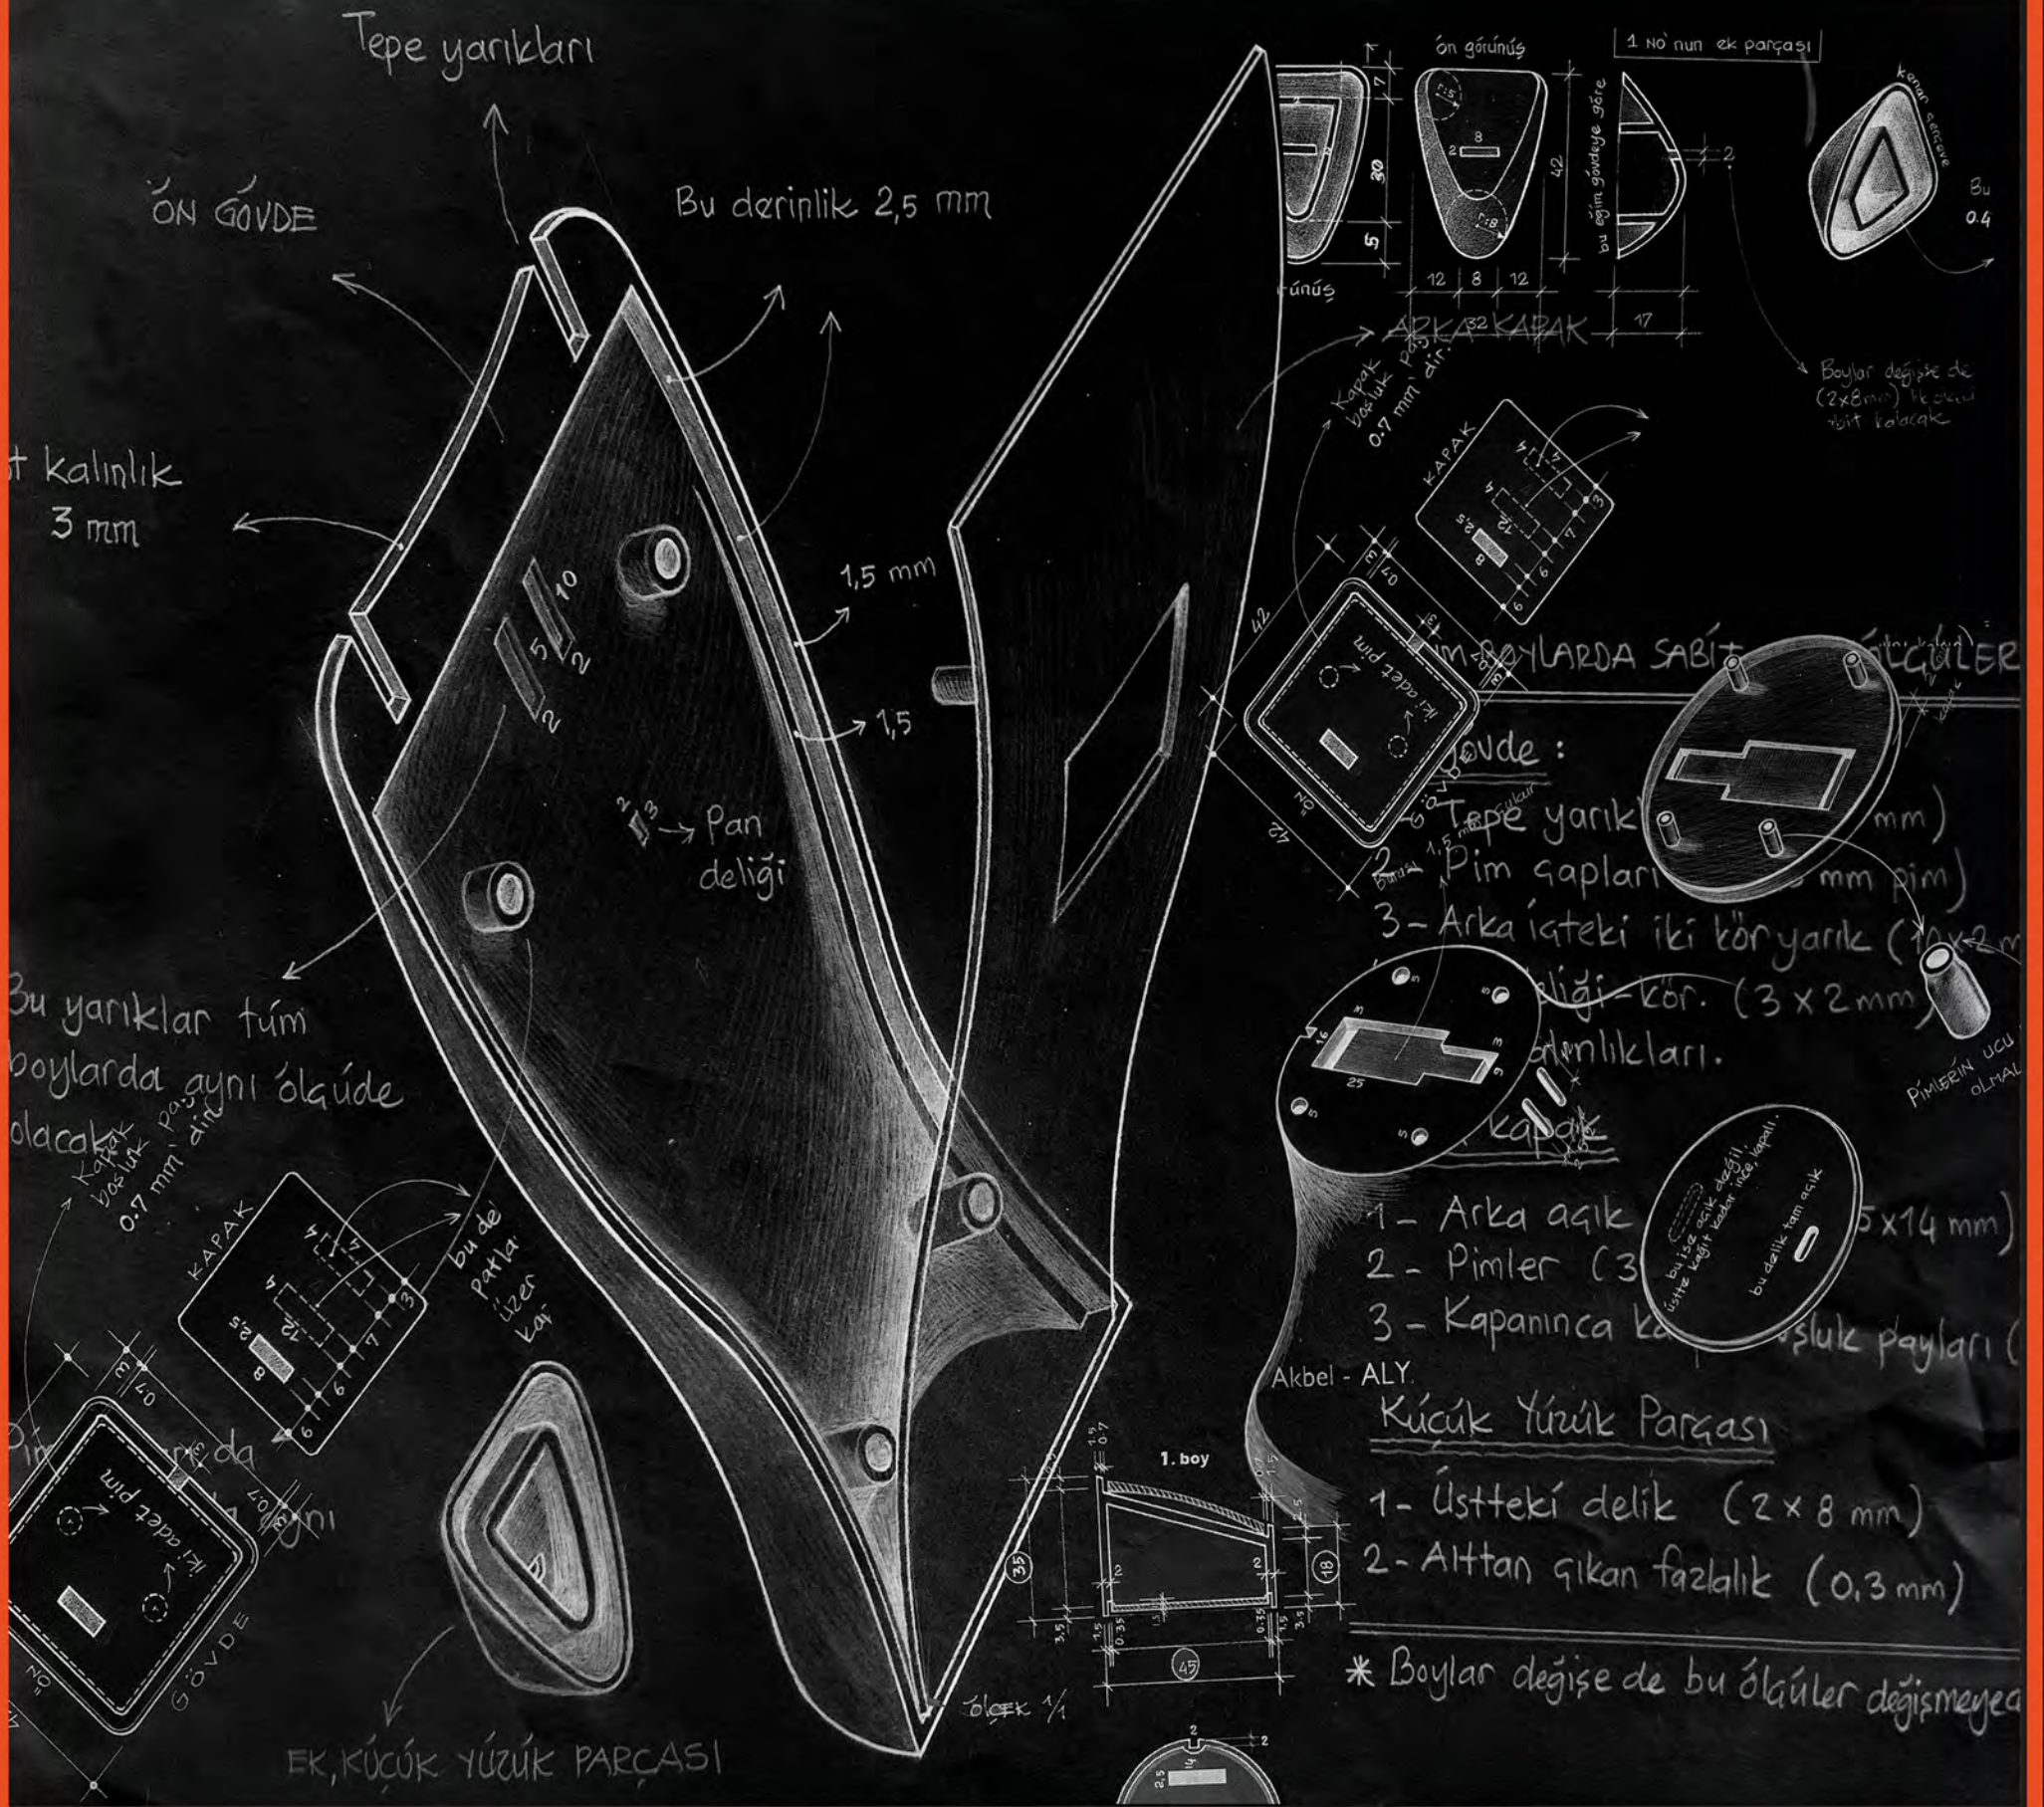 Tepe yarıkları
ÖN GÖVDE
Bu derinlik 2,5 mm
kalınlık
3 mm
10
5
2
2
1,5 mm
1,5
2 3
Pan
deliği
Bu yarıklar tüm
boylarda aynı ölçüde
olacak
Kapak
boşluk
0.7 mm' dir
KAPAK
4
4
4
12
2,5
8
3
7
6
6
bu de
üzer
3
0.7
iki adet pim
ÖN
GÖVDE
EK, KÜÇÜK YÜZÜK PARÇASI
ön görünüş
r:5
8
2
r:8
7
30
5
42
12
8
12
32
ünüş
1 No'nun ek parçası
bu eğim gövdeye göre
2
17
kenar çerçeve
Bu
0.4
ARKA KAPAK
Boylar değişse de
(2x8mm)
kalacak
Kapak
boşluk
0.7 mm' dir.
KAPAK
4
4
4
12
2,5
8
3
7
6
6
3
0.7
42
iki adet pim
ÖN
GÖVDE
42
BOYLARDA SABİT
ÖLÇÜLER
Gövde :
Tepe yarık
mm)
2- Pim çapları
mm pim)
3- Arka içteki iki kör yarık (10x2 m
eliği-kör. (3 x 2 mm
kalınlıkları.
16
3
25
3
9
5
5
5
5
PİMLERİN UCU
OLMAL
kapak
1- Arka açık
5x14 mm)
2- Pimler (3
3- Kapanınca ka
oşluk payları (
bu ise açık değil,
üstte kağıt kadar ince, kapalı.
bu delik tam açık
Akbel - ALY.
Küçük Yüzük Parçası
1- Üstteki delik (2 x 8 mm)
2- Alttan çıkan fazlalık (0,3 mm)
* Boylar değişe de bu ölçüler değişmeyec
1. boy
1.5
0.7
35
2
2
18
3,5
1,5
0.35
0.35
1,5
3,5
45
ÖLÇEK 1/1
2
2
14
2,5